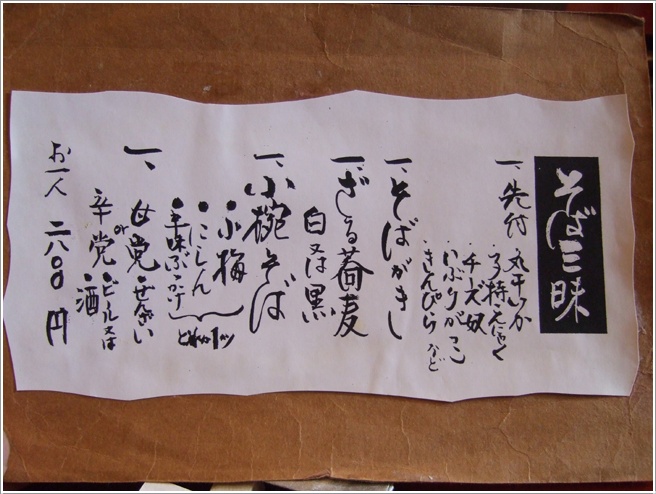 そば三昧
一、先付 丸干いか
子持こんにゃく
・チーズ奴
・いぶりがっこ
・きんぴら など
一、そばがきし
一、ざる蕎麦
白又は黒
一、小碗そば
・小梅
・にしん
・辛味ぶっかけ
どれか1ッ
一、甘党 ぜんざい
or
辛党 ・ビール又は
・酒
お一人 二八〇〇円